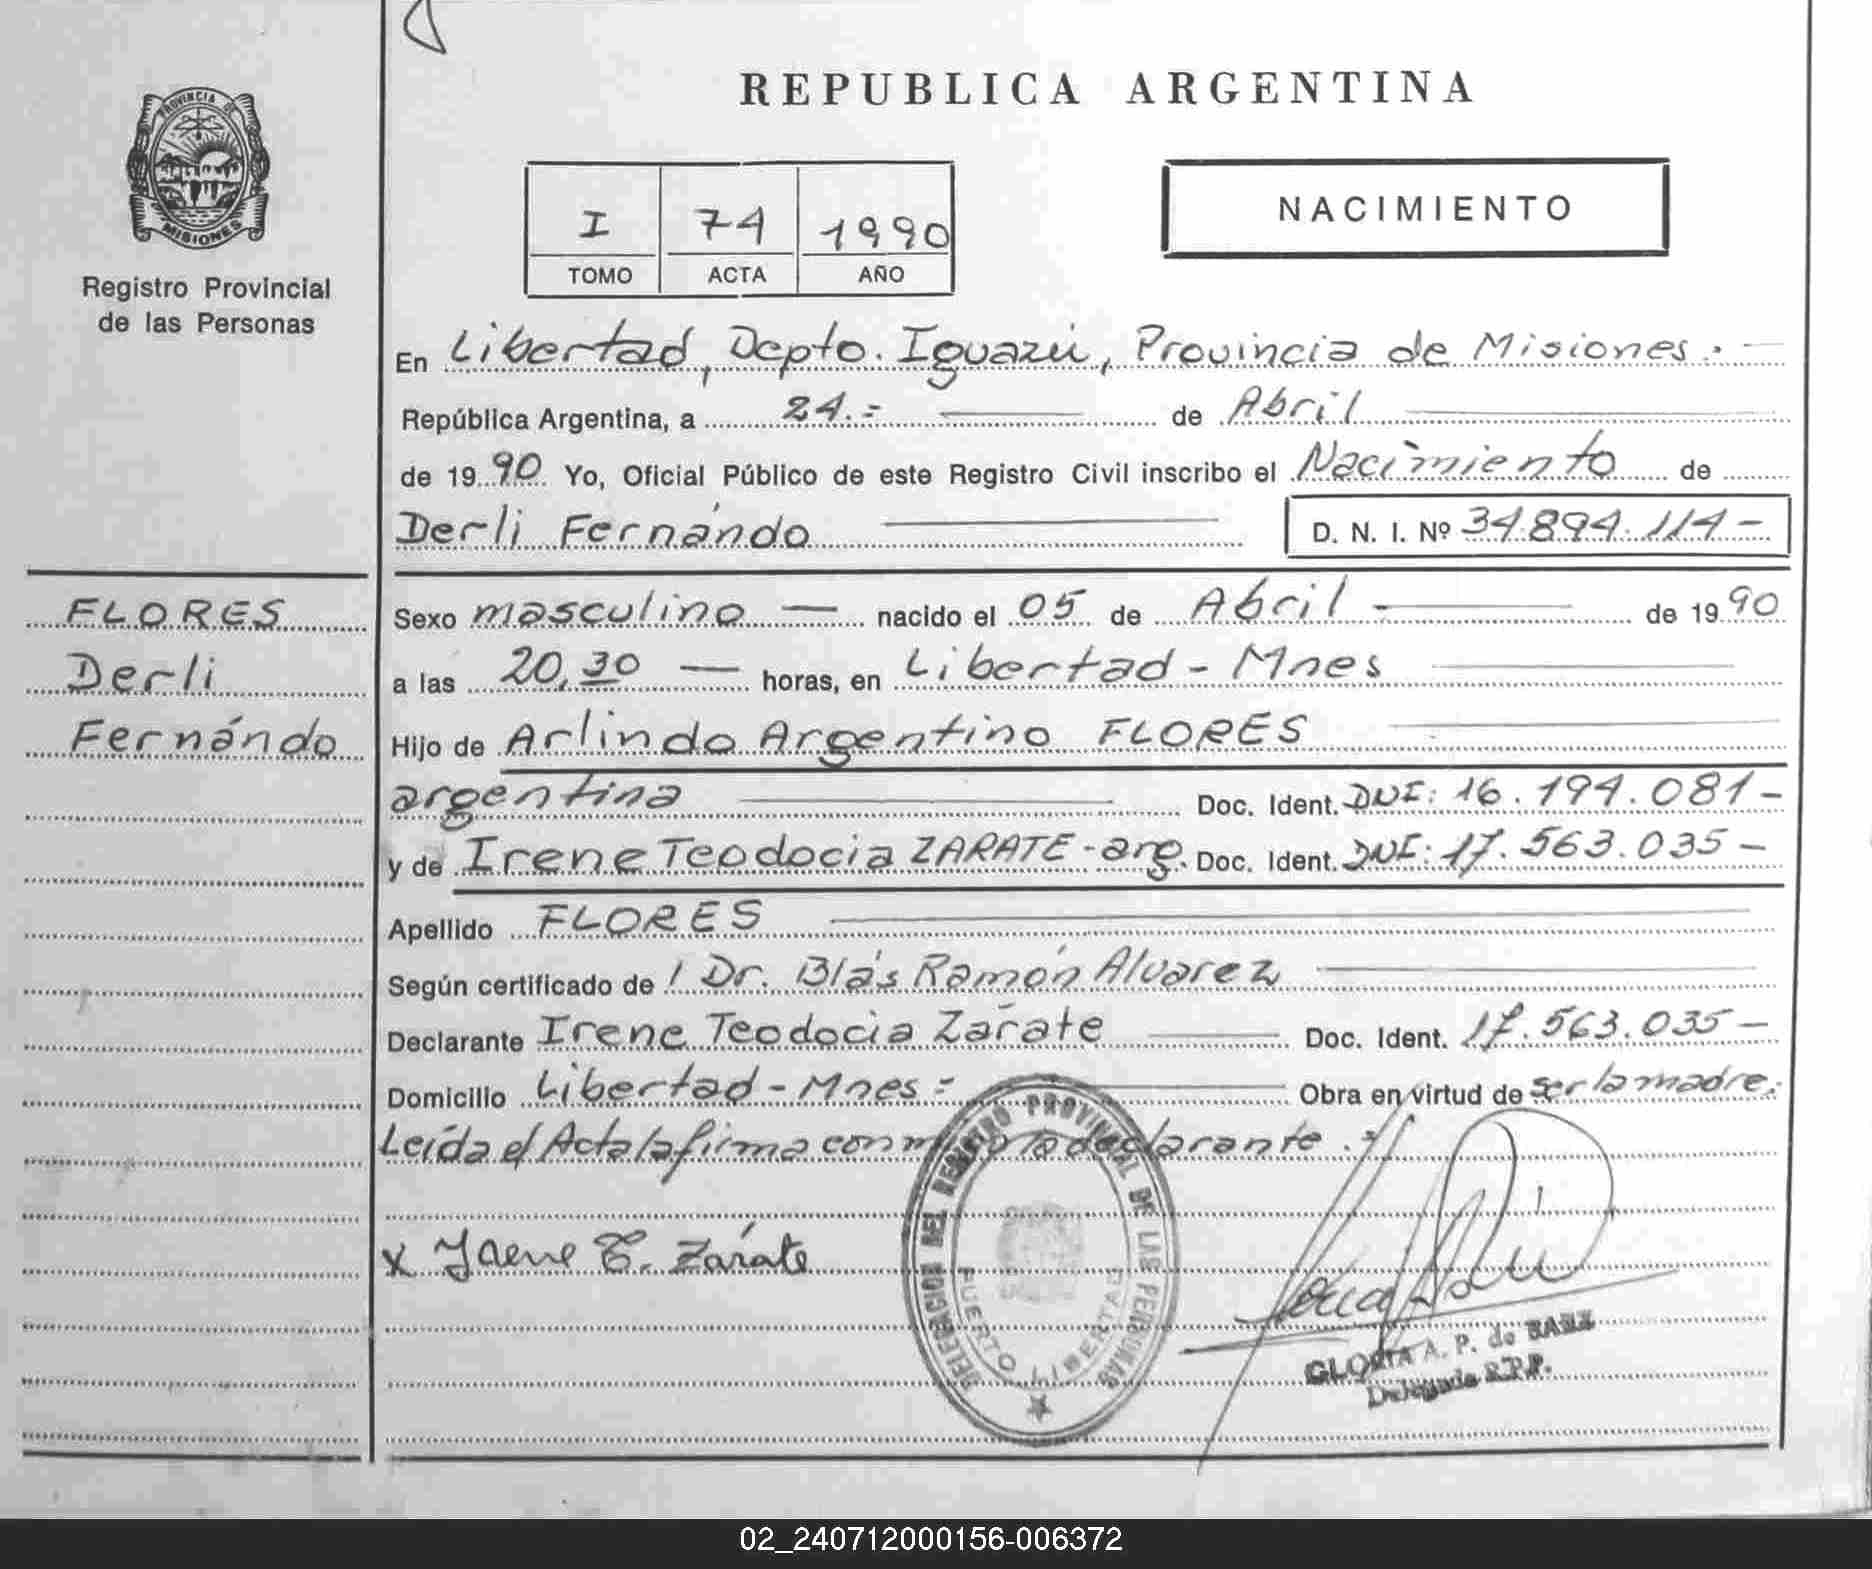 REPUBLICA ARGENTINA
PROVINCIA DE
MISIONES
Registro Provincial
de las Personas
I 74 1990
TOMO ACTA AÑO
NACIMIENTO
En Libertad, Depto. Iguazú, Provincia de Misiones.-
República Argentina, a 24.- de Abril
de 1990 Yo, Oficial Público de este Registro Civil inscribo el Nacimiento de
Derli Fernándo D. N. I. Nº 34.894.114-
FLORES
Derli
Fernándo
Sexo masculino nacido el 05 de Abril - de 1990
a las 20,30 horas, en Libertad - Mnes
Hijo de Arlindo Argentino FLORES
argentina Doc. Ident. DNI: 16.194.081-
y de Irene Teodocia ZARATE - arg. Doc. Ident. DNI: 17.563.035-
Apellido FLORES
Según certificado de / Dr. Blás Ramón Alvarez
Declarante Irene Teodocia Zárate Doc. Ident. 17.563.035-
Domicilio Libertad - Mnes= Obra en virtud de ser la madre.
Leída el Acta la firma con la declarante.-
x Irene T. Zárate
DELEGACION DEL REGISTRO PROVINCIAL DE LAS PERSONAS
PUERTO LIBERTAD
GLORIA A. P. de
Delegada R.P.P.
02_240712000156-006372